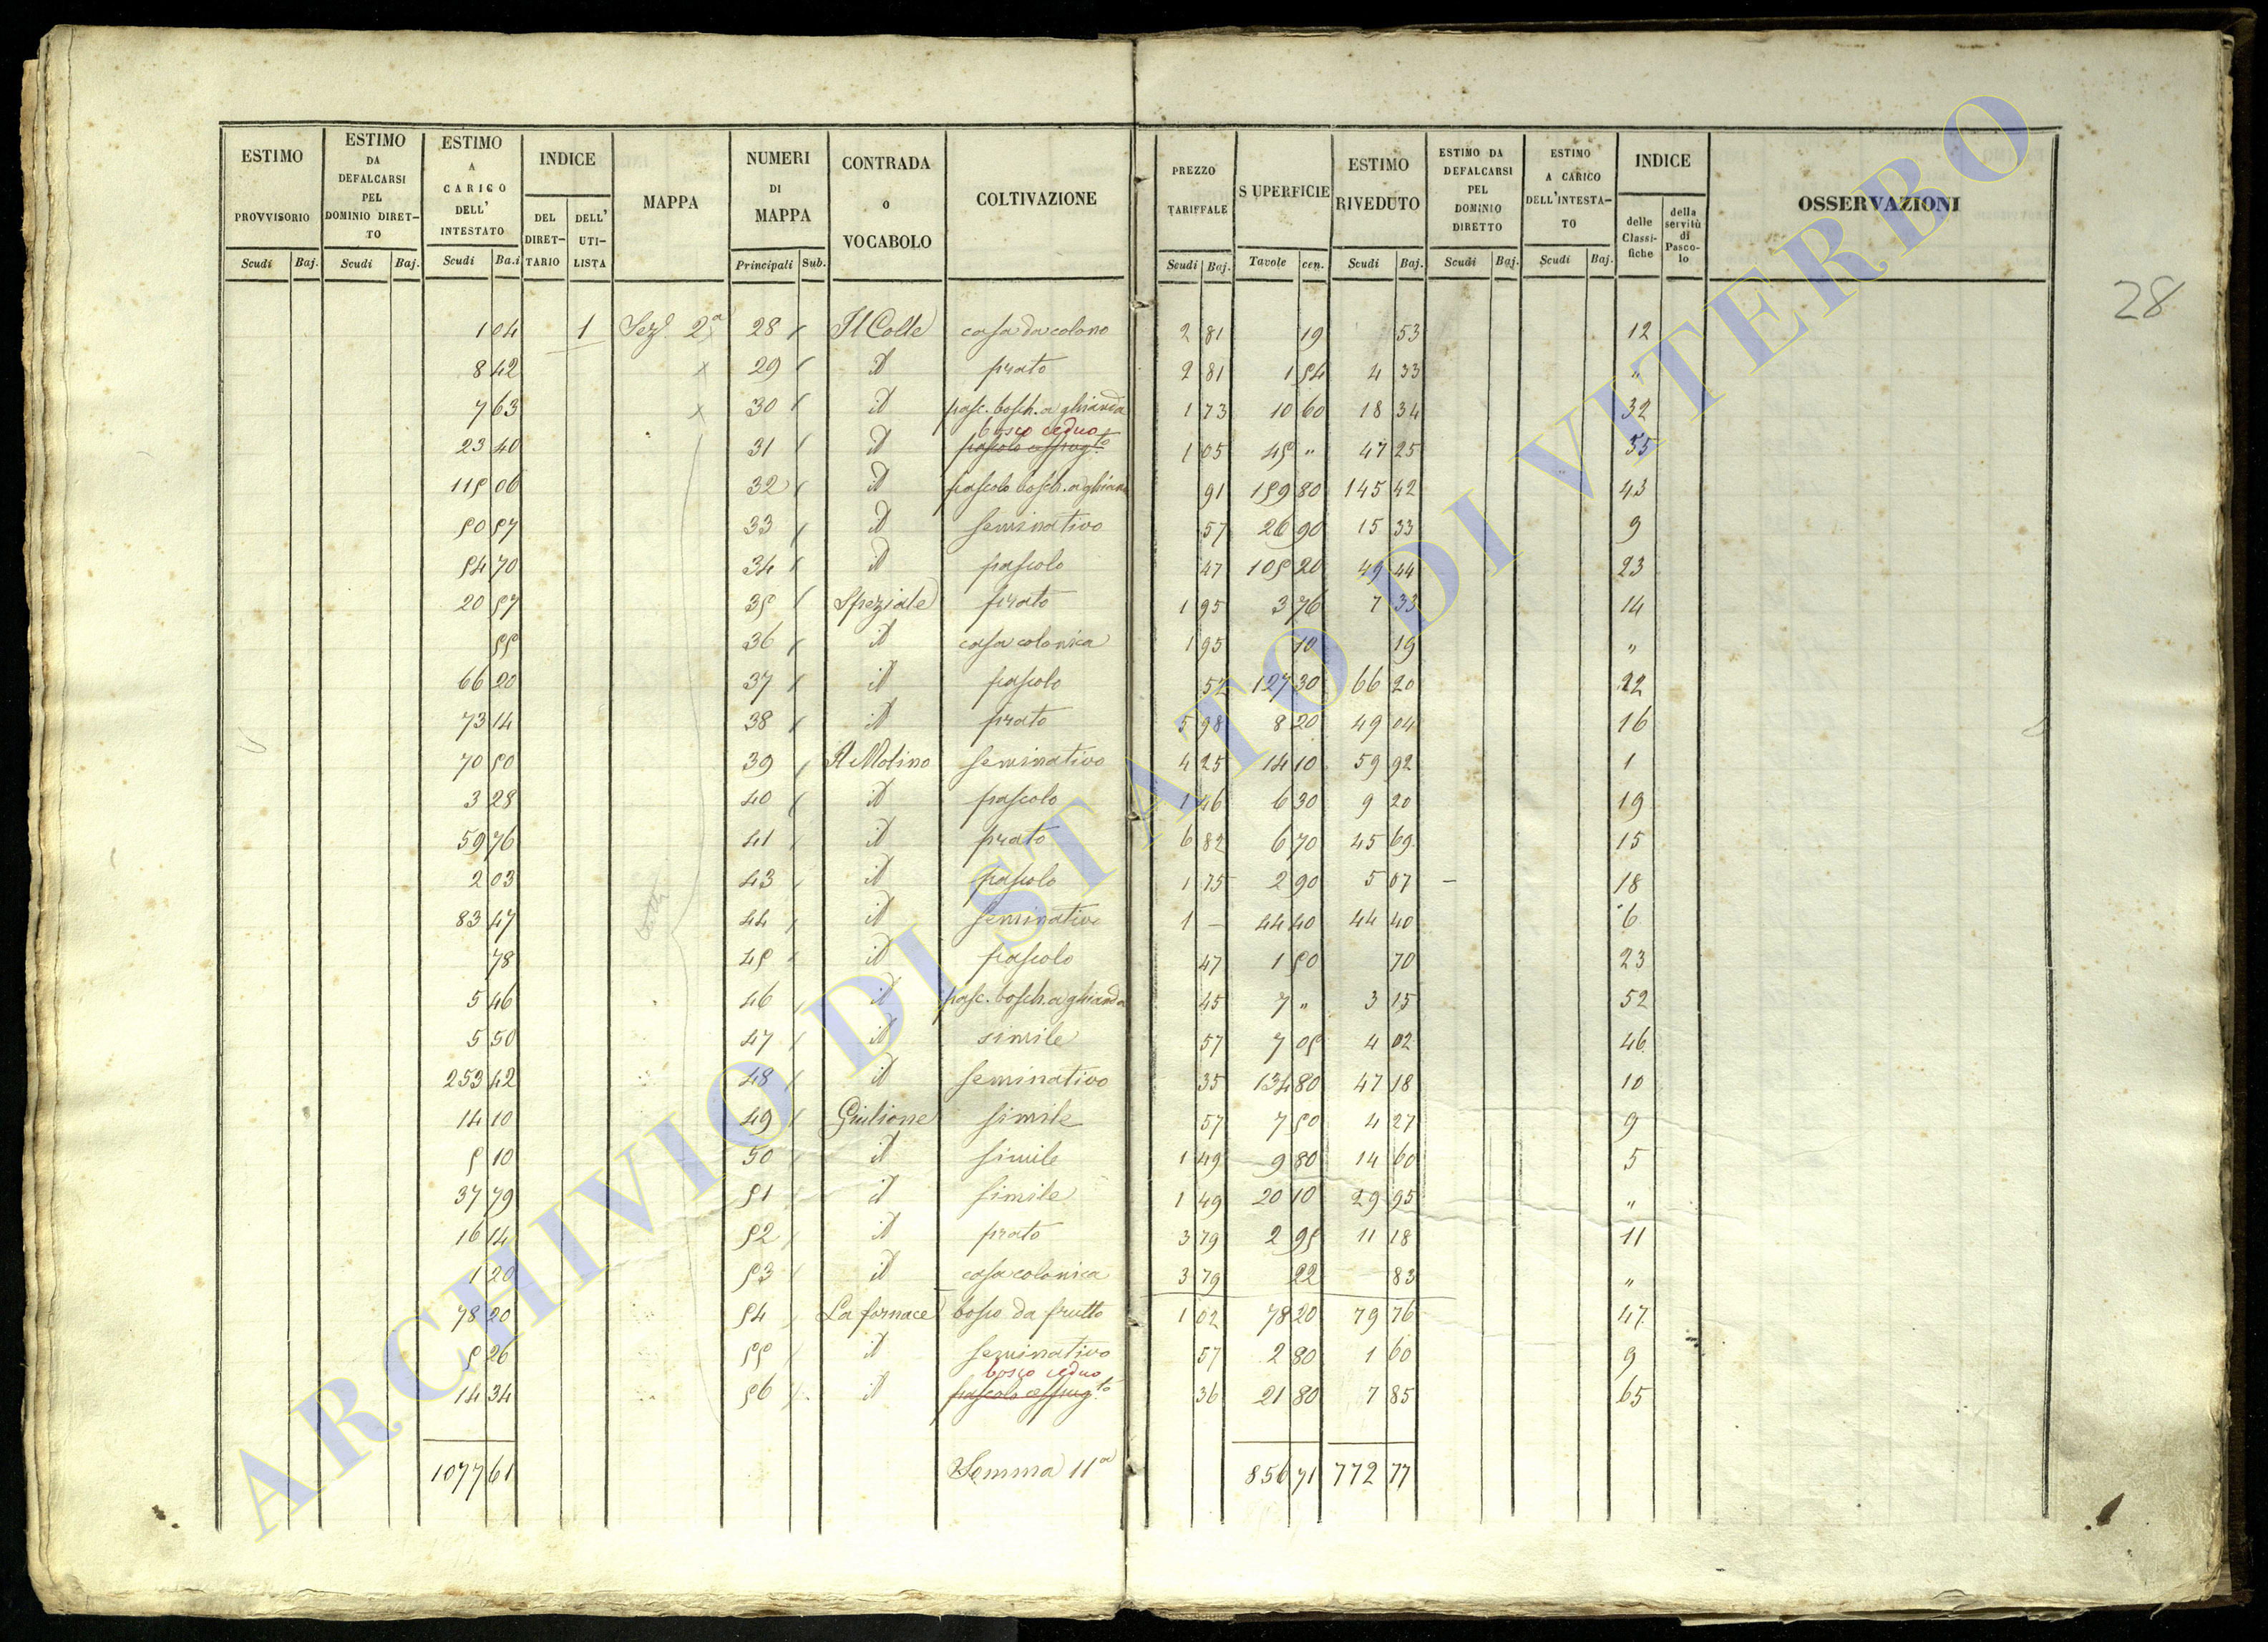 ESTIMO PROVVISORIO Scudi Baj. ESTIMO DA DEFALCARSI PEL DOMINIO DIRETTO Scudi Baj. ESTIMO A CARICO DELL' INTESTATO Scudi Ba.i INDICE DEL DIRETTARIO DELL' UTILISTA MAPPA NUMERI DI MAPPA Principali Sub. CONTRADA o VOCABOLO COLTIVAZIONE PREZZO TARIFFALE Scudi Baj. SUPERFICIE Tavole cen. ESTIMO RIVEDUTO Scudi Baj. ESTIMO DA DEFALCARSI PEL DOMINIO DIRETTO Scudi Baj. ESTIMO A CARICO DELL'INTESTATO Scudi Baj. INDICE delle Classifiche della servitù di Pascolo OSSERVAZIONI
28
1 04 1 Sez. 2ª 28 Il Colle casa da colono 2 81 19 53 12
8 42 29 id prato 2 81 1 54 4 33 "
7 63 30 id pasc. bosch. a ghianda 1 73 10 60 18 34 32
bosco ceduo
23 40 31 id pascolo cespug.to 1 05 45 " 47 25 55
115 06 32 id pascolo bosch. a ghian 91 159 80 145 42 43
50 57 33 id seminativo 57 26 90 15 33 9
54 70 34 id pascolo 47 105 20 49 44 23
20 57 35 Speziale prato 1 95 3 76 7 33 14
55 36 id casa colonica 1 95 10 19 "
66 20 37 id pascolo 52 127 30 66 20 22
73 14 38 id prato 5 98 8 20 49 04 16
70 50 39 Il Molino seminativo 4 25 14 10 59 92 1
3 28 40 id pascolo 1 46 6 30 9 20 19
59 76 41 id prato 6 82 6 70 45 69 15
2 03 43 id pascolo 1 75 2 90 5 07 – 18
83 47 44 id seminativo 1 – 44 40 44 40 6
78 45 id pascolo 47 1 50 70 23
5 46 46 id pasc. bosch. a ghianda 45 7 " 3 15 52
5 50 47 id simile 57 7 05 4 02 46
253 42 48 id seminativo 35 134 80 47 18 10
14 10 49 Giulione simile 57 7 50 4 27 9
5 10 50 id simile 1 49 9 80 14 60 5
37 79 51 id simile 1 49 20 10 29 95 "
16 14 52 id prato 3 79 2 95 11 18 11
1 20 53 id casa colonica 3 79 22 83 "
78 20 54 La fornace bosco da frutto 1 02 78 20 79 76 47
5 26 55 id seminativo 57 2 80 1 60 9
bosco ceduo
14 34 56 id pascolo cespug.to 36 21 80 7 85 65
1077 61 Somma 11ª 856 71 772 77
ARCHIVIO DI STATO DI VITERBO